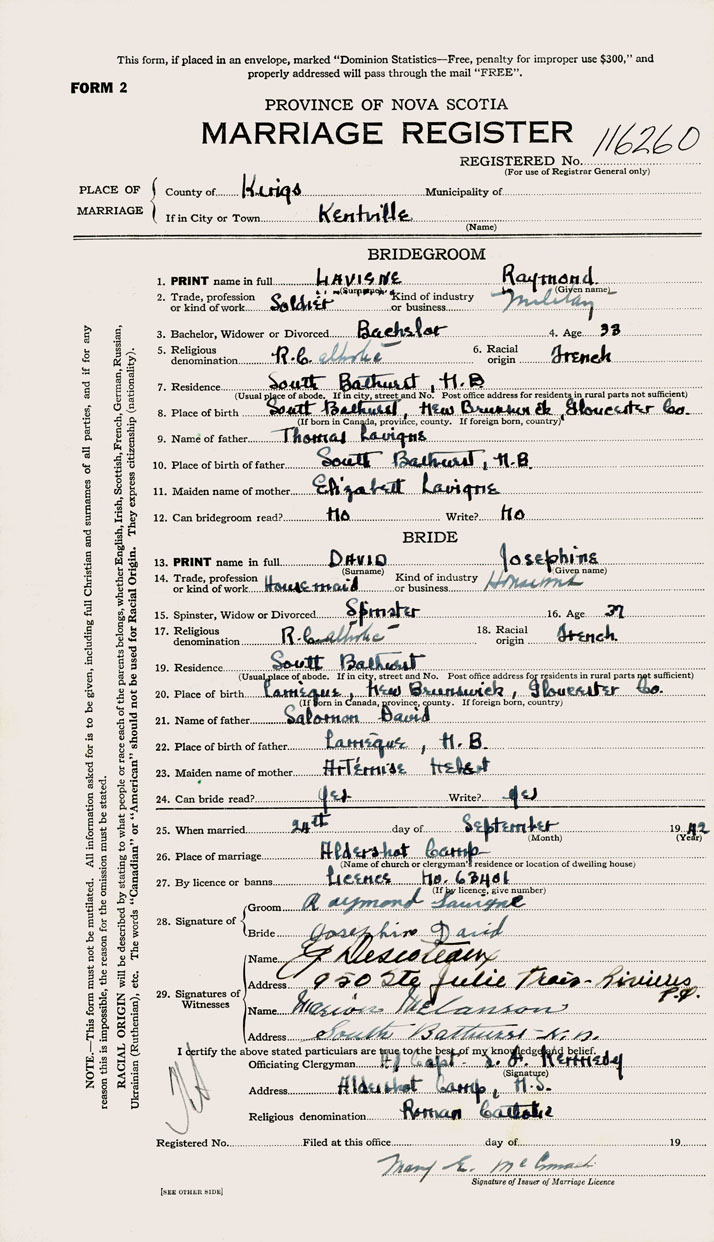 This form, if placed in an envelope, marked “Dominion Statistics—Free, penalty for improper use $300,” and
properly addressed will pass through the mail “FREE”.
FORM 2
PROVINCE OF NOVA SCOTIA
MARRIAGE REGISTER
REGISTERED No. 116260
(For use of Registrar General only)
PLACE OF MARRIAGE
County of Kings Municipality of
If in City or Town Kentville
(Name)
BRIDEGROOM
1. PRINT name in full LAVIGNE Raymond
(Surname) (Given name)
2. Trade, profession or kind of work Soldier Kind of industry or business Military
3. Bachelor, Widower or Divorced Bachelor 4. Age 38
5. Religious denomination R.Catholic 6. Racial origin French
7. Residence South Bathurst, N.B
(Usual place of abode. If in city, street and No. Post office address for residents in rural parts not sufficient)
8. Place of birth South Bathurst, New Brunswick, Gloucester Co.
(If born in Canada, province, county. If foreign born, country)
9. Name of father Thomas Lavigne
10. Place of birth of father South Bathurst, N.B.
11. Maiden name of mother Elizabett Lavigne
12. Can bridegroom read? No Write? No
BRIDE
13. PRINT name in full DAVID Josephine
(Surname) (Given name)
14. Trade, profession or kind of work Housemaid Kind of industry or business
15. Spinster, Widow or Divorced Spinster 16. Age 37
17. Religious denomination R.Catholic 18. Racial origin French
19. Residence South Bathurst
(Usual place of abode. If in city, street and No. Post office address for residents in rural parts not sufficient)
20. Place of birth Lamèque, New Brunswick, Gloucester Co.
(If born in Canada, province, county. If foreign born, country)
21. Name of father Salomon David
22. Place of birth of father Lamèque, N.B.
23. Maiden name of mother Artémise Hebert
24. Can bride read? Yes Write? Yes
25. When married 24th day of September 1942
(Month) (Year)
26. Place of marriage Aldershot Camp
(Name of church or clergyman's residence or location of dwelling house)
27. By licence or banns Licence No. 63401
(If by licence, give number)
28. Signature of
Groom Raymond Lavigne
Bride Josephin David
29. Signatures of Witnesses
Name J Descoteaux
Address 950 Ste Julie Trois-Rivieres P.Q.
Name Marion Melanson
Address South Bathurst N.B.
I certify the above stated particulars are true to the best of my knowledge and belief.
Officiating Clergyman H/Capt. Kennedy
(Signature)
Address Aldershot Camp, N.S.
Religious denomination Roman Catholic
Registered No. Filed at this office day of 19
Mary E.
Signature of Issuer of Marriage Licence
[SEE OTHER SIDE]
NOTE.—This form must not be mutilated. All information asked for is to be given, including full Christian and surnames of all parties, and if for any
reason this is impossible, the reason for the omission must be stated.
RACIAL ORIGIN will be described by stating to what people or race each of the parents belongs, whether English, Irish, Scottish, French, German, Russian,
Ukrainian (Ruthenian), etc. The words “Canadian” or “American” should not be used for Racial Origin. They express citizenship (nationality).